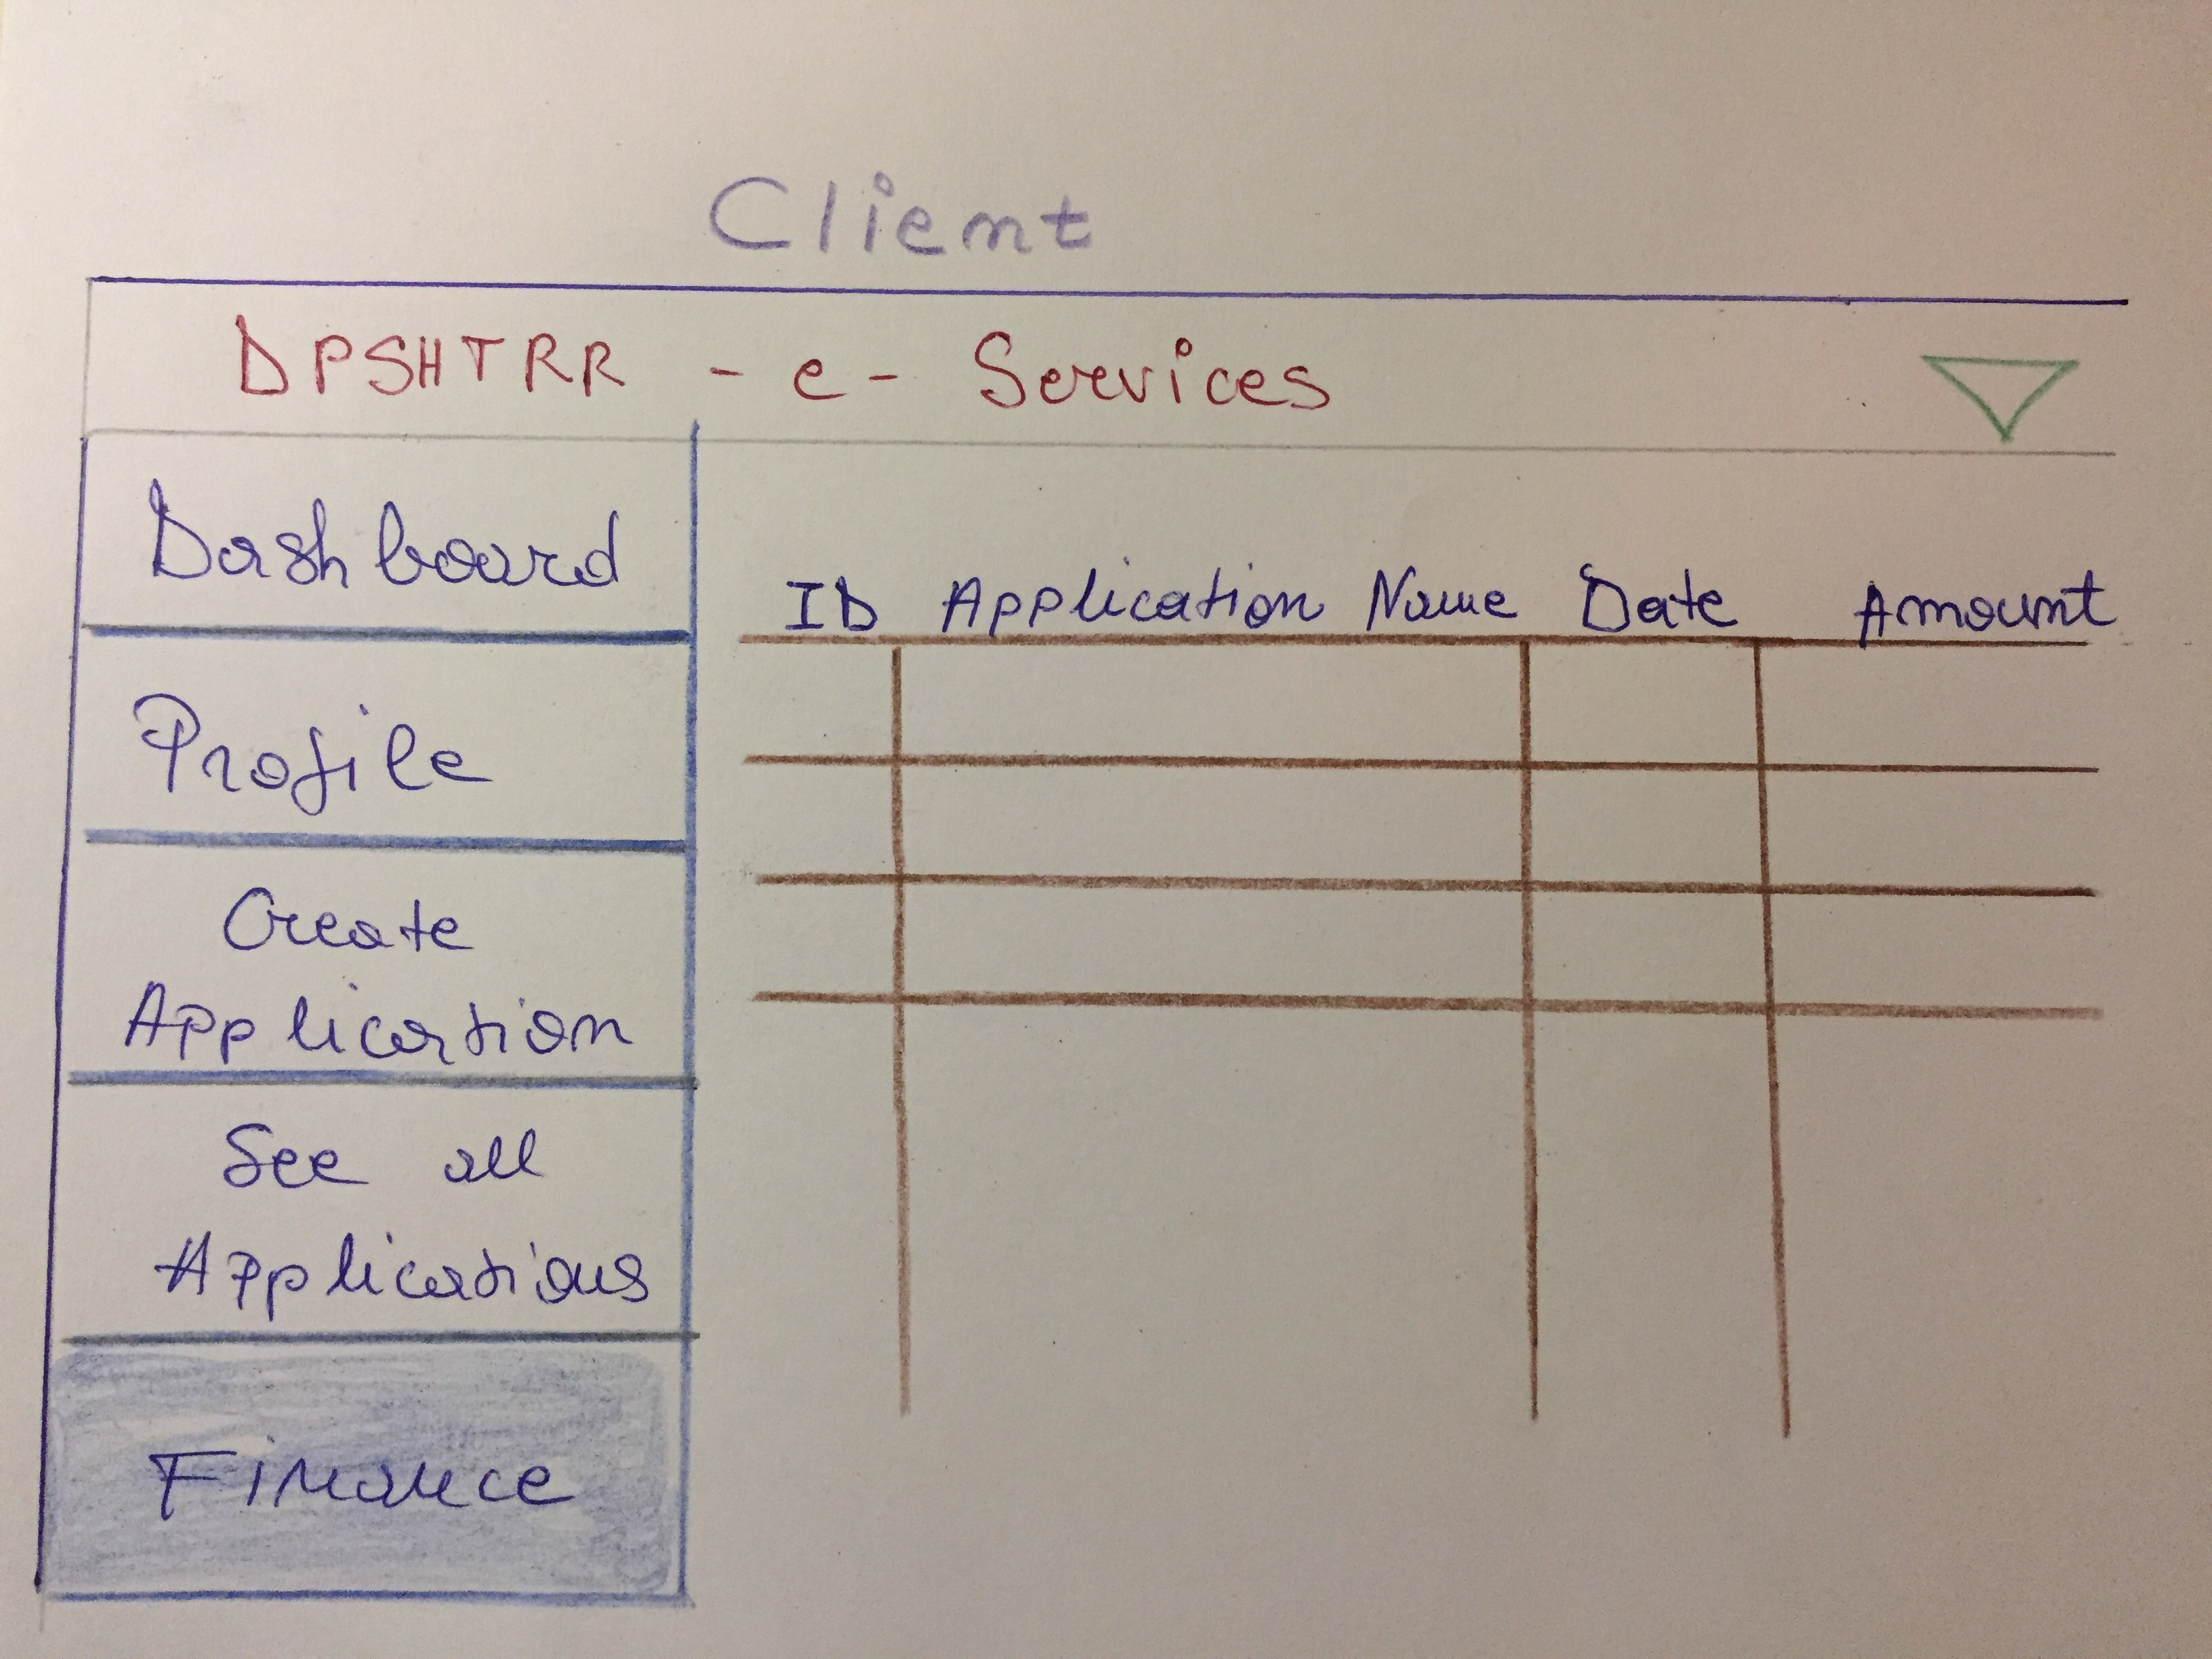 Client
DPSHTRR - e- Services
Dashboard
Profile
Create
Application
See all
Applications
Finance
ID Application Name Date Amount